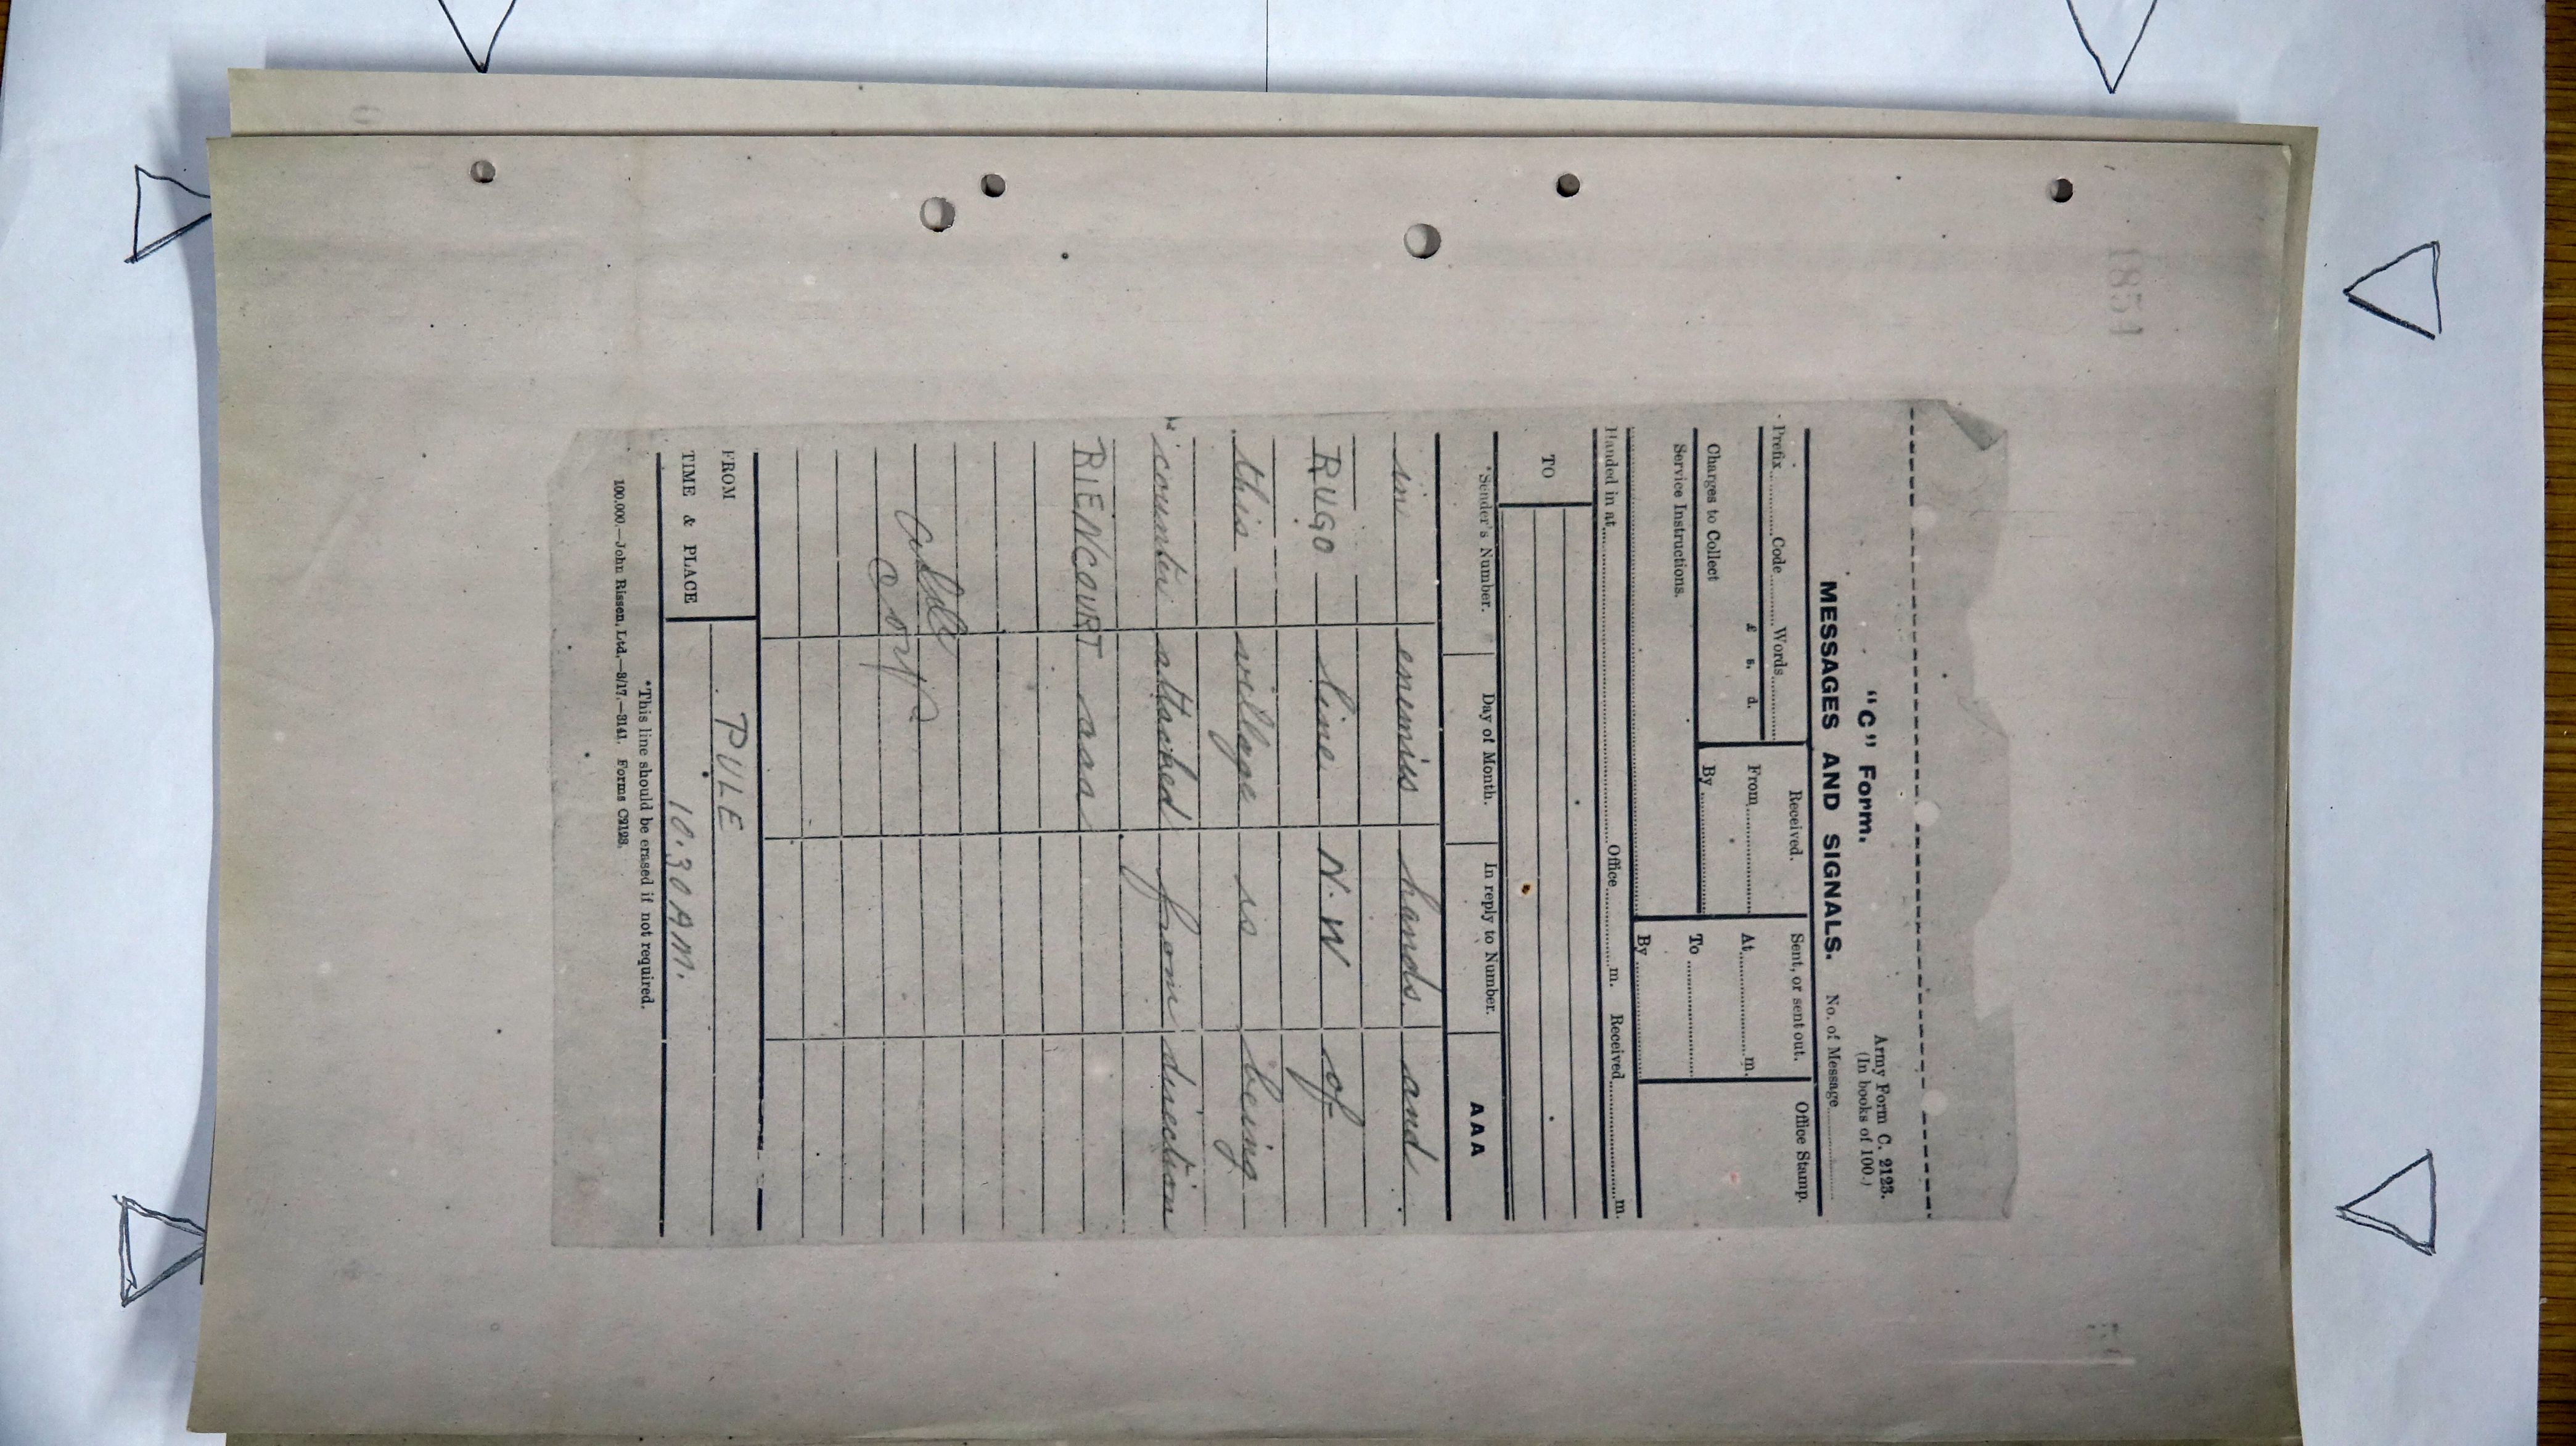 1854
"C" Form.
Army Form C. 2123.
(In books of 100.)
MESSAGES AND SIGNALS. No. of Message
Prefix Code Words
Received. Sent, or sent out. Office Stamp.
£ s. d.
From At m.
Charges to Collect
By To
Service Instructions.
By
Handed in at Office m. Received m.
TO
*Sender's Number. Day of Month. In reply to Number. AAA
in enemiss hands. and
RUGO line N.W of
this village is being
counter attached from direction
RIENCOURT aaa
addd
Corps
FROM PULE
TIME & PLACE 10.30 AM.
*This line should be erased if not required.
100,000.—John Rissen, Ltd.—3/17.—3141. Forms C2123.